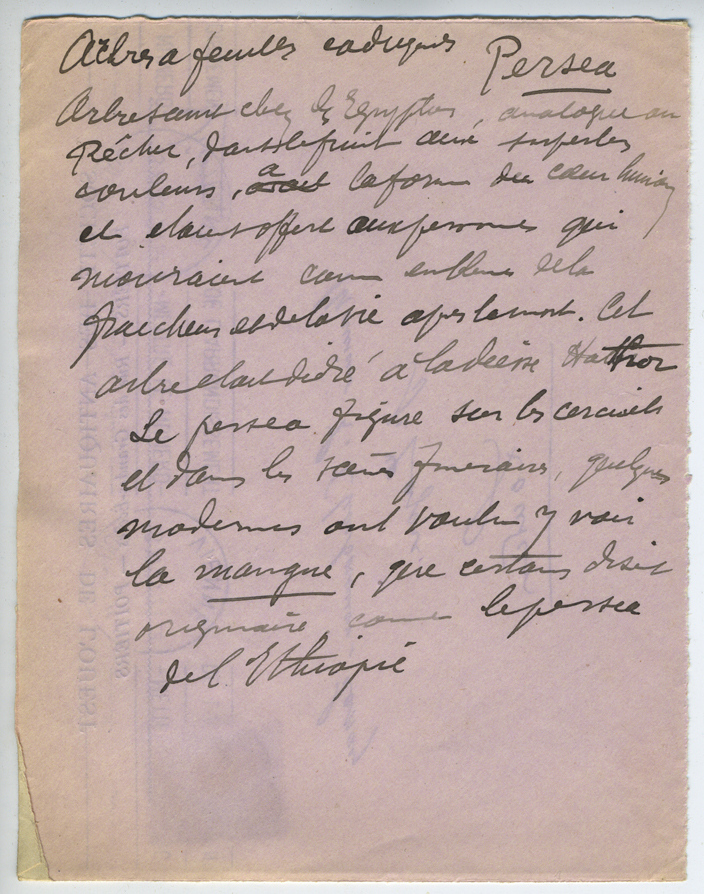 Arbres a feuilles caduques Persea
Arbre saint chez les Egyptiens, analogue au
Pêcher, dont le fruit aux superbes
couleurs, a avait la forme du cœur humain
et etait offert aux personnes qui
mouraient comme embleme de la
fraicheur et de la vie apres la mort. Cet
arbre etait dédié à la déesse Hathor
Le persea figure sur les cercueils
et dans les scènes funeraires, quelques
modernes ont voulu y voir
la mangue, que certains disent
originaire comme le persea
de l'Ethiopie